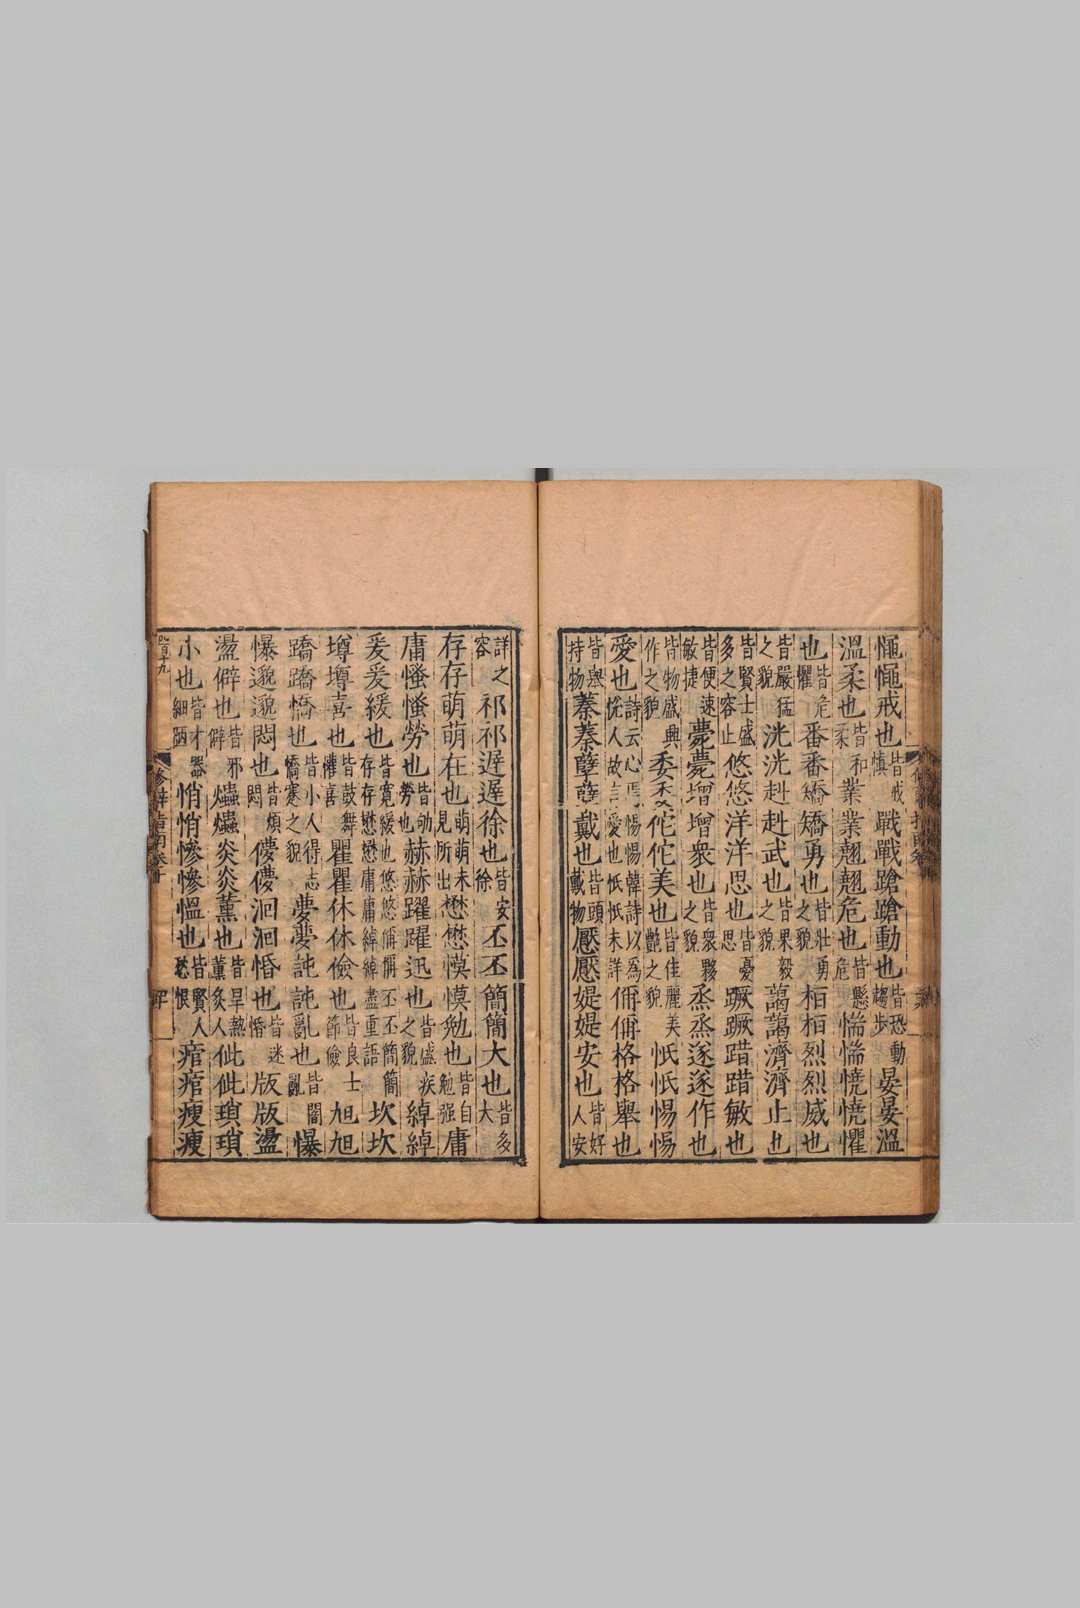 慎慎戒也皆戒慎戰戰蹌蹌動也皆恐動趨步晏晏溫
溫柔也皆和柔業業翹翹危也皆懸危惴惴憢憢懼
也皆危懼番番矯矯勇也皆壯勇之貌桓桓烈烈威也
皆嚴猛之貌洸洸赳赳武也皆果毅之貌藹藹濟濟止也
皆賢士盛多之容止悠悠洋洋思也皆憂思蹶蹶踖踖敏也
皆便速敏捷薨薨增增衆也皆衆夥之貌烝烝遂遂作也
皆物盛興作之貌委委佗佗美也皆佳麗美艷之貌忯忯惕惕
愛也詩云心焉惕惕韓詩以為悅人故言愛也忯忯未詳偁偁格格舉也
皆舉持物蓁蓁孽孽戴也皆頭戴物懕懕媞媞安也皆好人安
詳之容祁祁遲遲徐也皆安徐丕丕簡簡大也皆多大
存存萌萌在也萌萌未見所出懋懋慔慔勉也皆自勉强庸
庸慅慅勞也皆劬勞也赫赫躍躍迅也皆盛疾之貌綽綽
爰爰緩也皆寬緩也悠悠偁偁丕丕簡簡存存懋懋庸庸綽綽盡重語坎坎
墫墫喜也皆鼓舞懽喜瞿瞿休休儉也皆良士節儉旭旭
蹻蹻憍也皆小人得志憍蹇之貌夢夢訰訰亂也皆闇亂爆
爆邈邈悶也皆煩悶儚儚洄洄惛也皆迷惛版版盪
盪僻也皆邪僻爞爞炎炎薰也皆旱熱薰炙人佌佌瑣瑣
小也皆才器細陋悄悄慘慘慍也皆賢人愁恨痯痯瘐瘐